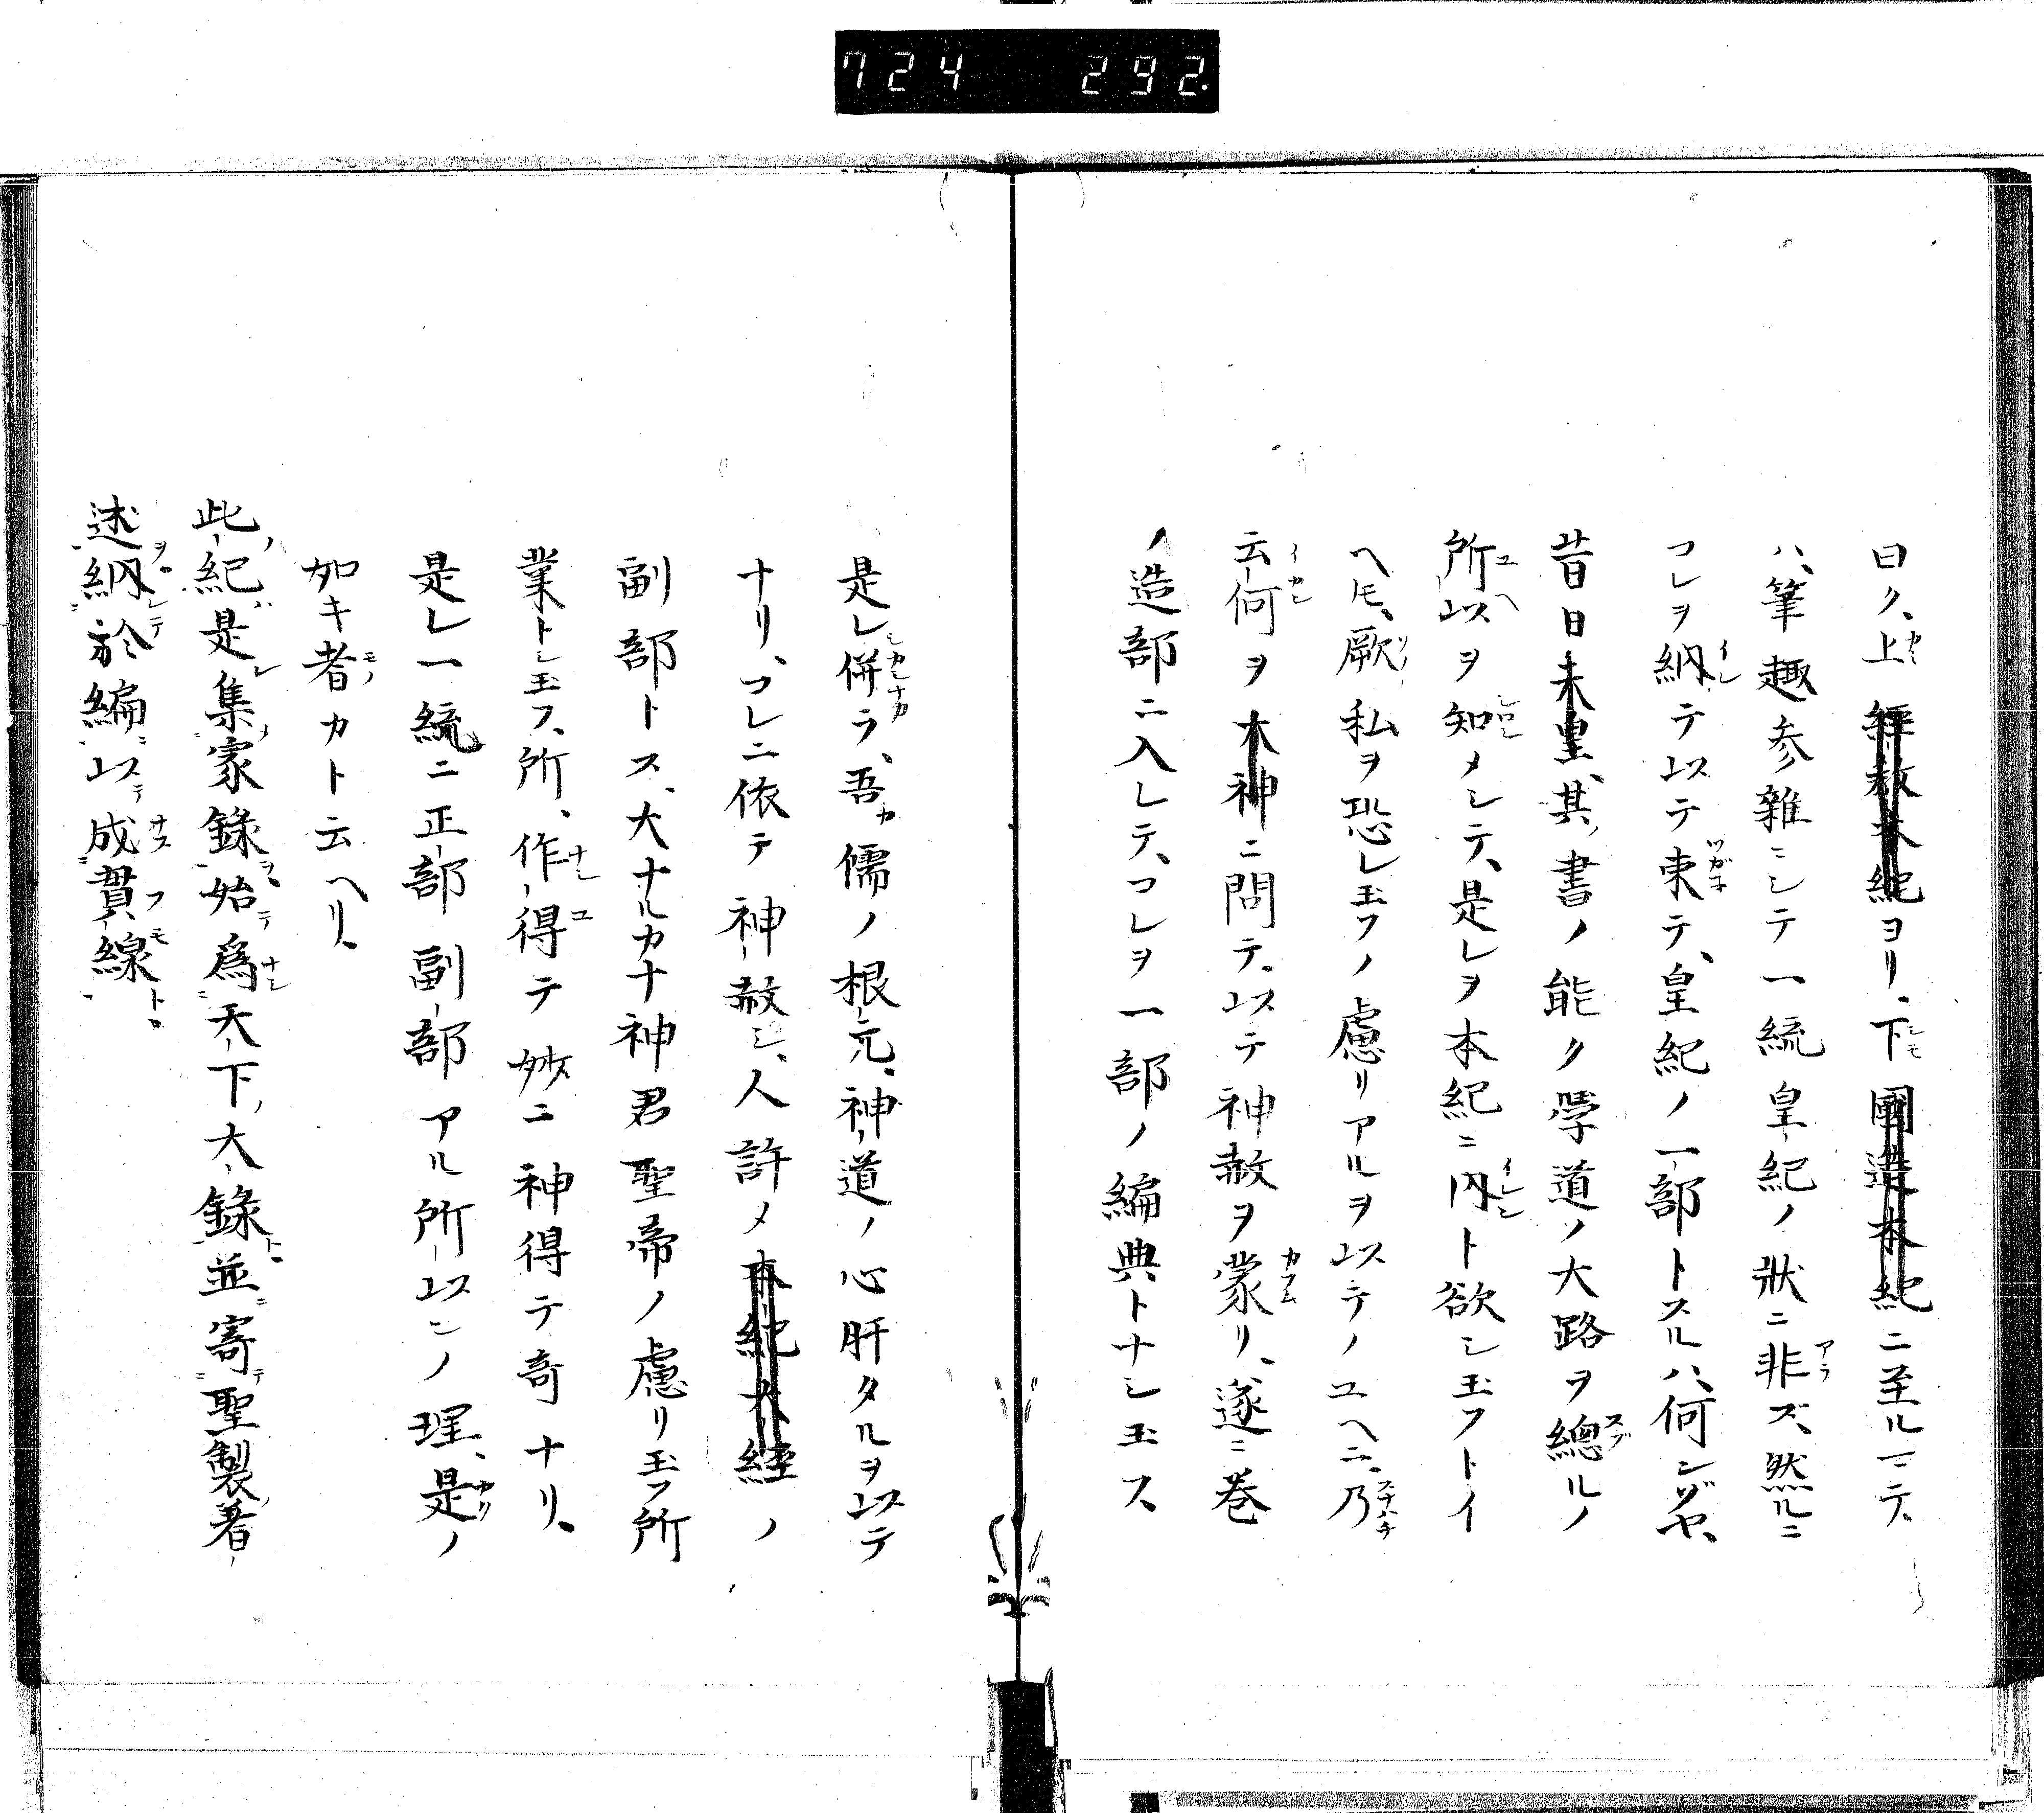 724 292.
曰ク、上經教本紀ヨリ、下國造本紀ニ至ルマテ、
ハ、筆趣参雜ニシテ一統皇紀ノ狀ニ非ズ、然ルニ
コレヲ納テ以テ束テ、皇紀ノ一部トスルハ、何ンゾヤ、
昔日末皇、其書ノ能ク學道ノ大路ヲ總ルノ
所以ヲ知メシテ、是レヲ本紀ニ内ト欲シ玉フトイ
ヘ𪜈、厥私ヲ恐レ玉フノ慮リアルヲ以テノユヘニ、乃
云何ヲ大神ニ問テ、以テ神赦ヲ蒙リ、遂ニ巻
ノ造部ニ入レテ、コレヲ一部ノ編典トナシ玉ス
是レ併ラ、吾カ儒ノ根元、神道ノ心肝タルヲ以テ
ナリ、コレニ依テ神赦シ、人許メ本紀大經ノ
副部トス、大ナルカナ神君聖帝ノ慮リ玉フ所
業トシ玉フ、所、作得テ妙ニ神得テ奇ナリ、
是レ一統ニ正部副部アル所以ンノ理、是ノ
如キ者カト云ヘリ、
此紀是集家錄始爲天下大錄並寄聖製着
述納於編以成貫線